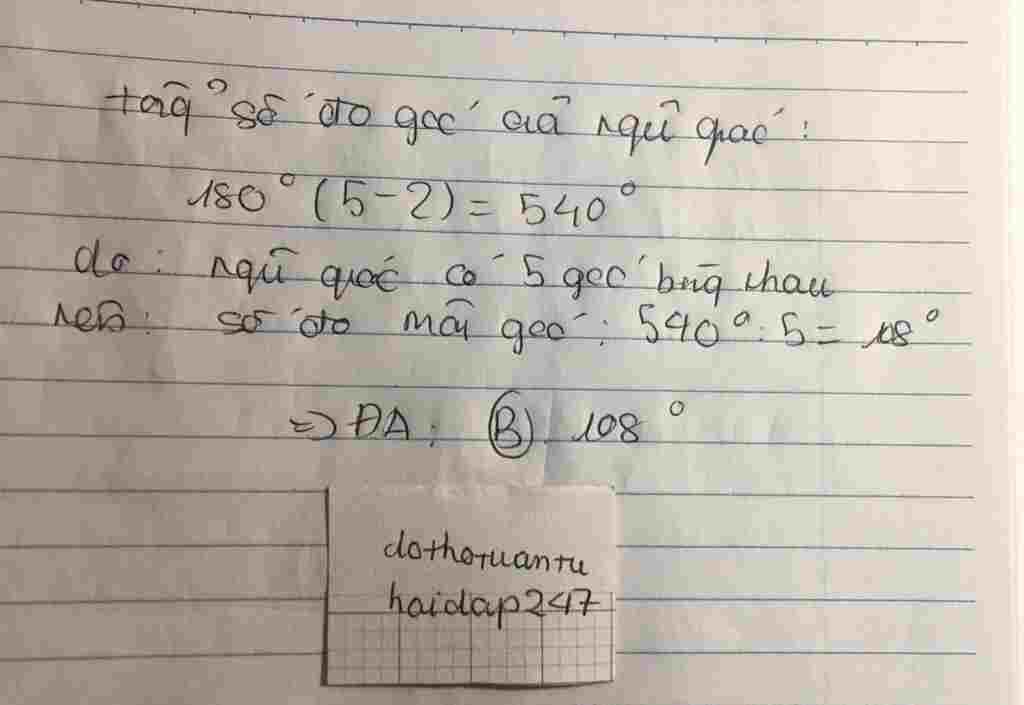 tổng số đo góc của ngũ giác :
180° (5-2) = 540°
do : ngũ giác có 5 góc bằng nhau
nên : số đo mỗi góc : 540° : 5 = 108°
=> ĐA : (B) 108°
dothotuantu
hoidap247